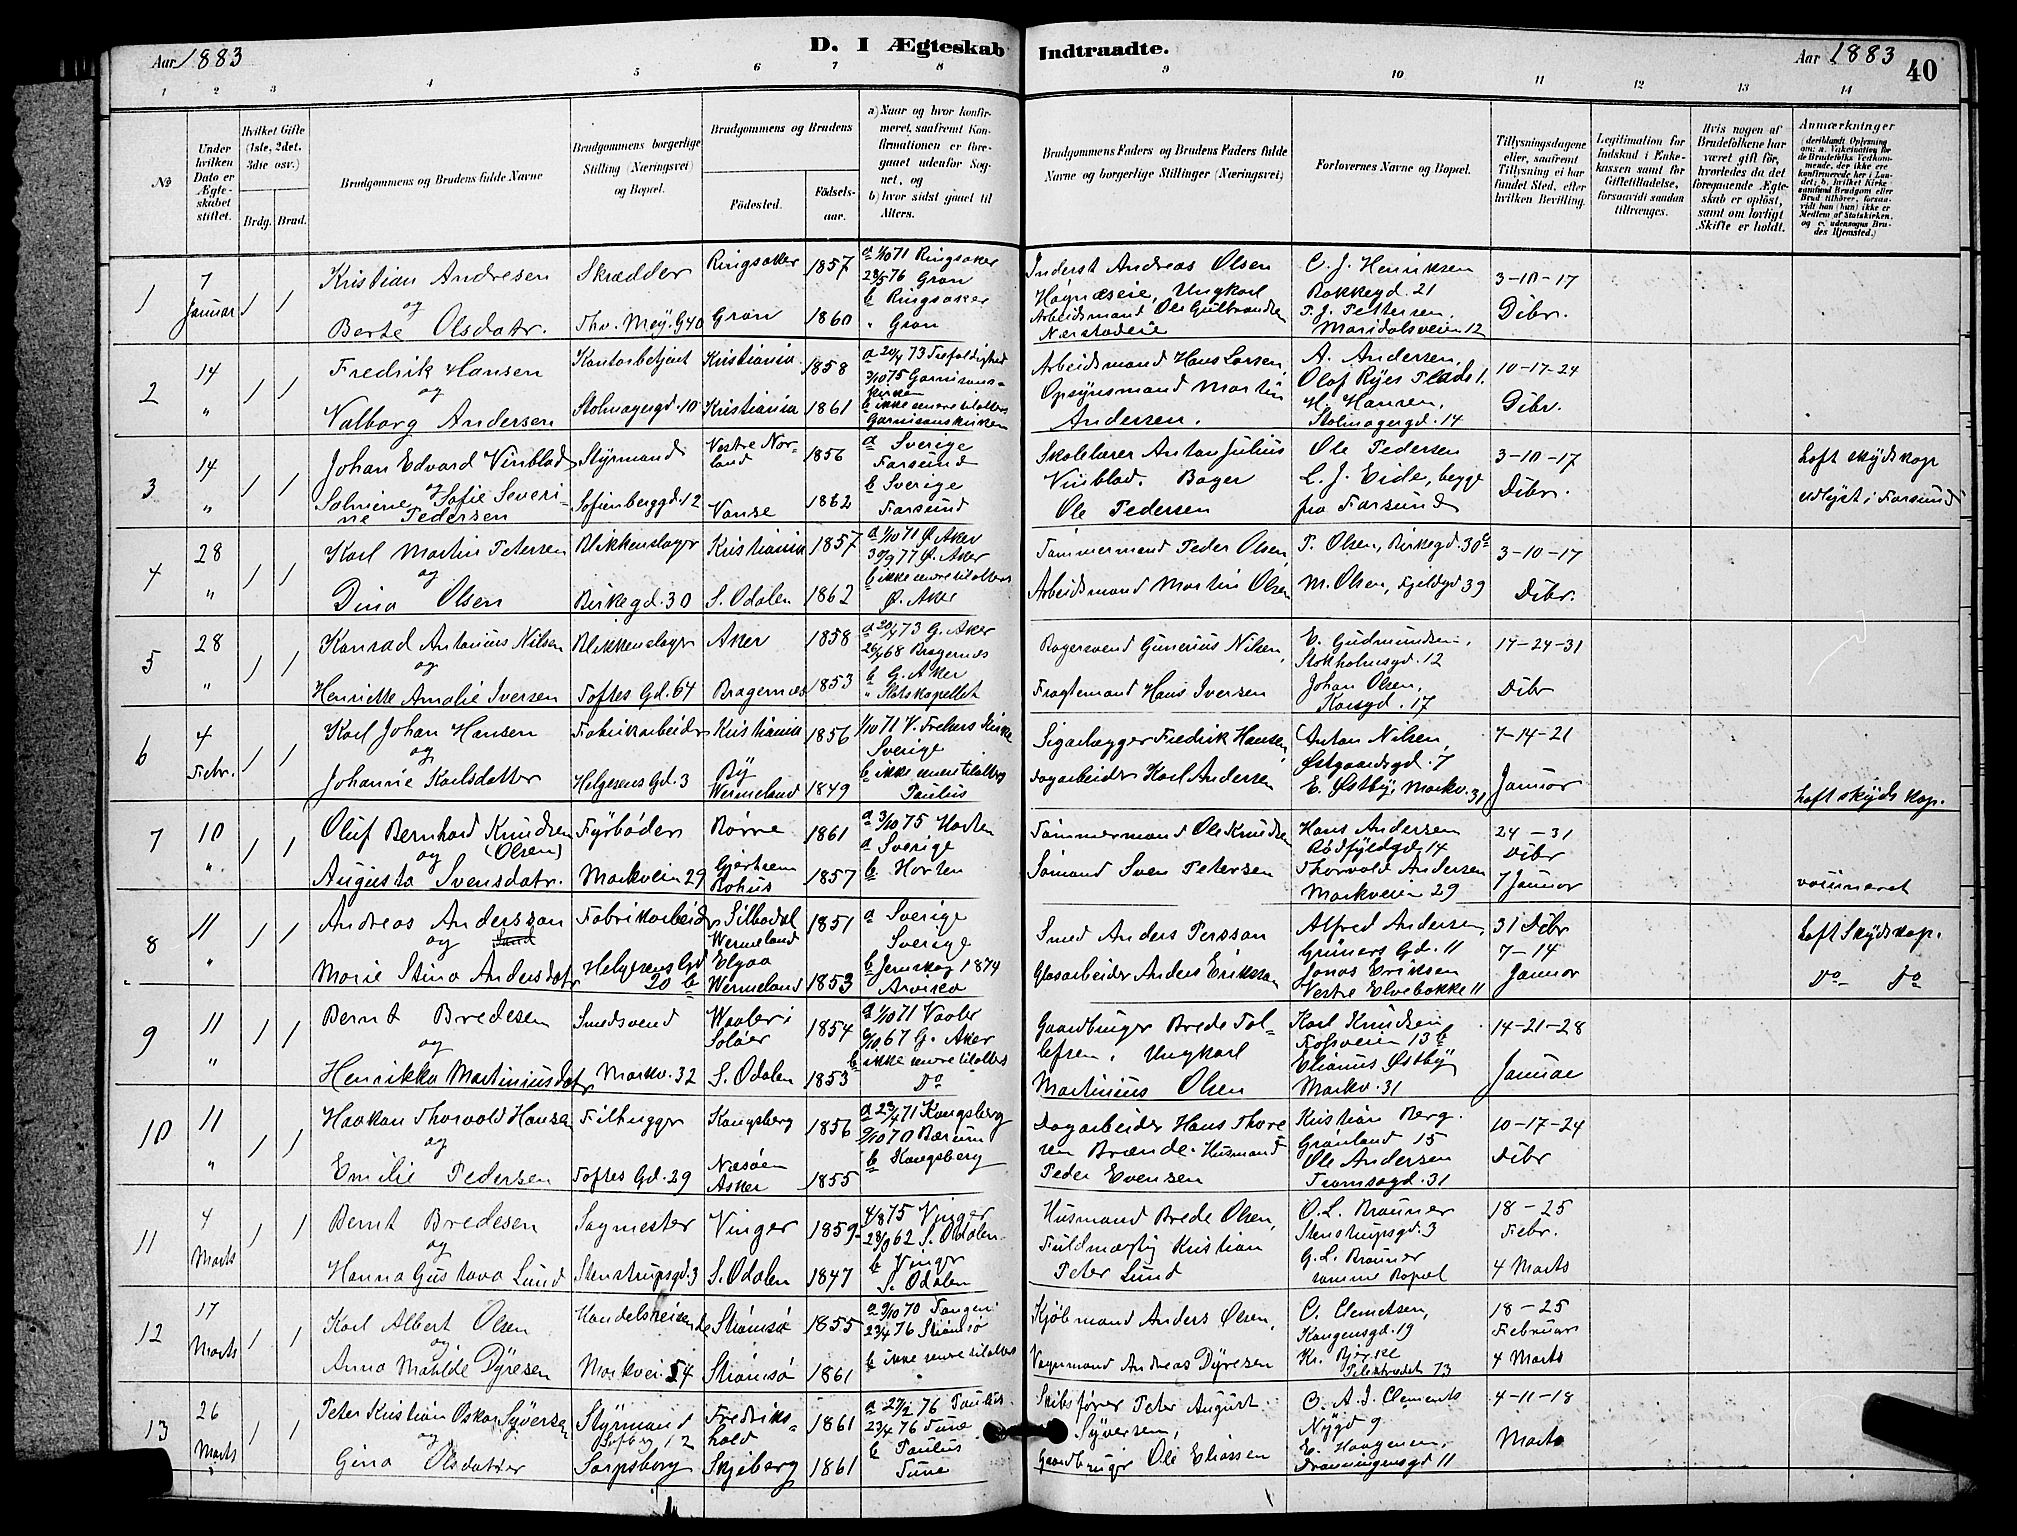 Aar 1883
D. I Ægteskab Indtraadte.
Aar 1883
40
1 2 3 4 5 6 7 8 9 10 11 12 13 14
№
Under hvilken Dato er Ægteskabet stiftet.
Hvilket Gifte (1ste, 2det, 3die osv.)
Brdg. Brud.
Brudgommens og Brudens fulde Navne
Brudgommens borgerlige Stilling (Næringsvei) og Bopæl.
Brudgommens og Brudens
Födested.
Födselsaar.
a) Naar og hvor konfirmeret, saafremt Konfirmationen er foregaaet udenfor Sognet, og
b) hvor sidst gaaet til Alters.
Brudgommens Faders og Brudens Faders fulde Navne og borgerlige Stillinger (Næringsvei)
Forlovernes Navne og Bopæl.
Tillysningsdagene eller, saafremt Tillysning ei har fundet Sted, efter hvilken Bevilling.
Legitimation for Indskud i Enkekassen samt for Giftetilladelse, forsaavidt saadan tiltrænges.
Hvis nogen af Brudefolkene har været gift før, hvorledes da det foregaaende Ægteskab er oplöst, samt om lovligt Skifte er holdt.
Anmærkninger
1 7 Januar 1 1
Kristian Andresen
og
Berte Olsdatr.
Skrædder
Thv. Mey. G 40
Ringsaker 1857
Gran 1860
a 1/10 71 Ringsaker
28/5 76 Gran
b Ringsaker
" Gran
Inderst Andreas Olsen
Høgnæseie, Ungkarl
Arbeidsmand Ole Gulbrandsen
Nærstadeie
C. J. Henriksen
Bakkegd. 21
P. J. Pettersen,
Maridalsveien 12
3-10-17
Dibr.
2 14 " 1 1
Fredrik Hansen
og
Valborg Andersen
Kontorbetjent
Stolmagergd. 10
Kristiania 1858
Kristiania 1861
a 20/4 73 Trefoldighed
3/10 75 Garnisonskirken
b ikke senere til alters
Garnisonskirken
Arbeidsmand Hans Larsen,
Opsynsmand Martin
Andersen.
A. Andersen,
Olaf Ryes Plads 1.
H. Hansen,
Stolmagergd. 14
10-17-24
Dibr.
3 14 " 1 1
Johan Edvard Vinblad
og
Salmine Sofie Severine Pedersen
Styrmand
Sofienberggd. 12
Vestre Norland 1856
Vanse 1862
a Sverige
Farsund
b Sverige
Farsund
Skolelærer Anton Julius
Vinblad. Bager
Ole Pedersen
Ole Pedersen
L. J. Eide, begge
fra Farsund
3-10-17
Dibr.
haft skydskop
udlyst i Farsund
4 28 " 1 1
Karl Martin Petersen
og
Dina Olsen
Blikkenslager
Birkegd. 30
Kristiania 1857
S. Odalen 1862
a 1/10 71 Ø. Aker
30/9 77 Ø. Aker
b ikke senere til alters
Ø. Aker
Tømmermand Peder Olsen,
Arbeidsmand Martin Olsen
P. Olsen, Birkegd. 30 b
M. Olsen, Fjeldgd 39
3-10-17
Dibr.
5 28 " 1 1
Konrad Antonius Nilsen
og
Henriette Amalie Iversen
Blikkenslager
Toftes Gd. 64
Aker 1858
Bragernæs 1853
a 20/4 73 G. Aker
26/4 68 Bragernæs
b G. Aker
" Slotskapellet
Bagersvend Gunerius Nilsen,
Fragtemand Hans Iversen
E. Gudmundsen,
Stokholmsgd. 12
Johan Olsen,
Korsgd. 17
17-24-31
Dibr
6 4 Febr. 1 1
Karl Johan Hansen
og
Johanne Karlsdatter
Fabrikarbeider
Helgesens Gd. 3
Kristiania 1856
By
Wermeland 1849
1/10 71 V. Frelsers Kirke
Sverige
b ikke senere til alters
Paulus
Sigarlægger Fredrik Hansen,
Dagarbeider Karl Andersen
Anton Nilsen,
Østgaardsgd. 7
E. Østby, Markv. 31
7-14-21
Januar
haft skyds kop.
7 10 " 1 1
Oluf Bernhard Knudsen
og (Olsen)
Augusta Svensdatr.
Fyrbøder
Markveien 29
Borre 1861
Gjertsem
Bohus 1857
a 3/10 75 Horten
a Sverige
b Horten
Tømmermand Ole Knudsen
Sømand Sven Petersen
Hans Andersen
Rødfyldgd. 14
Thorvald Andersen
Markveien 29
24-31
Dibr
7 Januar
vaccineret
8 11 " 1 1
Andreas Andersson
og
Marie Stina Andersdatr
Fabrikarbeider
Helgesens Gd
20 b
Silbodal
Wermeland 1851
Elgaa
Wermeland 1853
a Sverige
Sverige
b Jernskog 1874
Arvika
Smed Anders Persson
Glasarbeider Anders Eriksson
Alfred Andersen,
Grüners Gd. 11
Jonas Eriksen
Vestre Elvebakke 11
31 Dibr
7-14
Januar
haft Skydskop.
Do Do
9 11 " 1 1
Bernt Bredesen
og
Henrikka Martiniusdatr
Smedsvend
Markv. 32
Waaler i
Soløer 1854
S. Odalen 1853
a 1/10 71 Vaaler
6/10 67 G. Aker
b ikke senere til alters
Do
Gaardbruger Brede Tollefsen, Ungkarl
Martinius Olsen
Karl Knudsen
Fossveien 13 b
Elianus Østby
Markv. 31
14-21-28
Januar
10 11 " 1 1
Haakon Thorvald Hansen
og
Emilie Pedersen
Filhugger
Toftes Gd. 29
Kongsberg 1856
Næsøen
Asker 1855
a 23/4 71 Kongsberg
9/10 70 Bærum
b Kongsberg
Dagarbeider Hans Thoresen Brænde. Husmand
Peder Evensen
Kristian Berg.
Grønland 15
Ole Andersen
Tromsøgd. 31
10-17-24
Dibr
11 4 Marts 1 1
Bernt Bredesen
og
Hanna Gustava Lund
Sagmester
Stenstrupsgd. 3
Vinger 1859
S. Odalen 1847
4/8 75 Vinger
28/9 62 S. Odalen
b Vinger
S. Odalen
Husmand Brede Olsen,
Fuldmægtig Kristian
Peter Lund
O. L. Brauner
Stenstrupsgd. 3
G. L. Brauner
samme Bopæl
18-25
Febr.
4 Marts
12 17 Marts 1 1
Karl Albert Olsen
og
Anna Matilde Dyresen
Handelsreisende
Markvei 54
Strømsø 1855
Strømsø 1861
a 9/10 70 Tangen
23/4 76 Strømsø
b ikke senere til alters
"
Kjøbmand Anders Olsen,
Vognmand Andreas Dyresen
O. Clemetsen,
Kongensgd. 19
Kr. Bjerke
Pilestrædet 73
18-25
Februar
4 Marts
13 26 Marts 1 1
Peter Kristian Oskar Syversen
og
Gina Olsdatter
Styrmand
Sofbg 12
Sarpsborg
Fredrikshald 1861
Skjeberg 1861
a 27/2 76 Paulus
23/4 76 Tune
b Paulus
Tune
Skibsfører Peter August
Syversen,
Gaardbruger Ole Eliassen
C. A. J. Clements
Nygd 9
E. Haagensen,
Dronningensgd 11
4-11-18
Marts